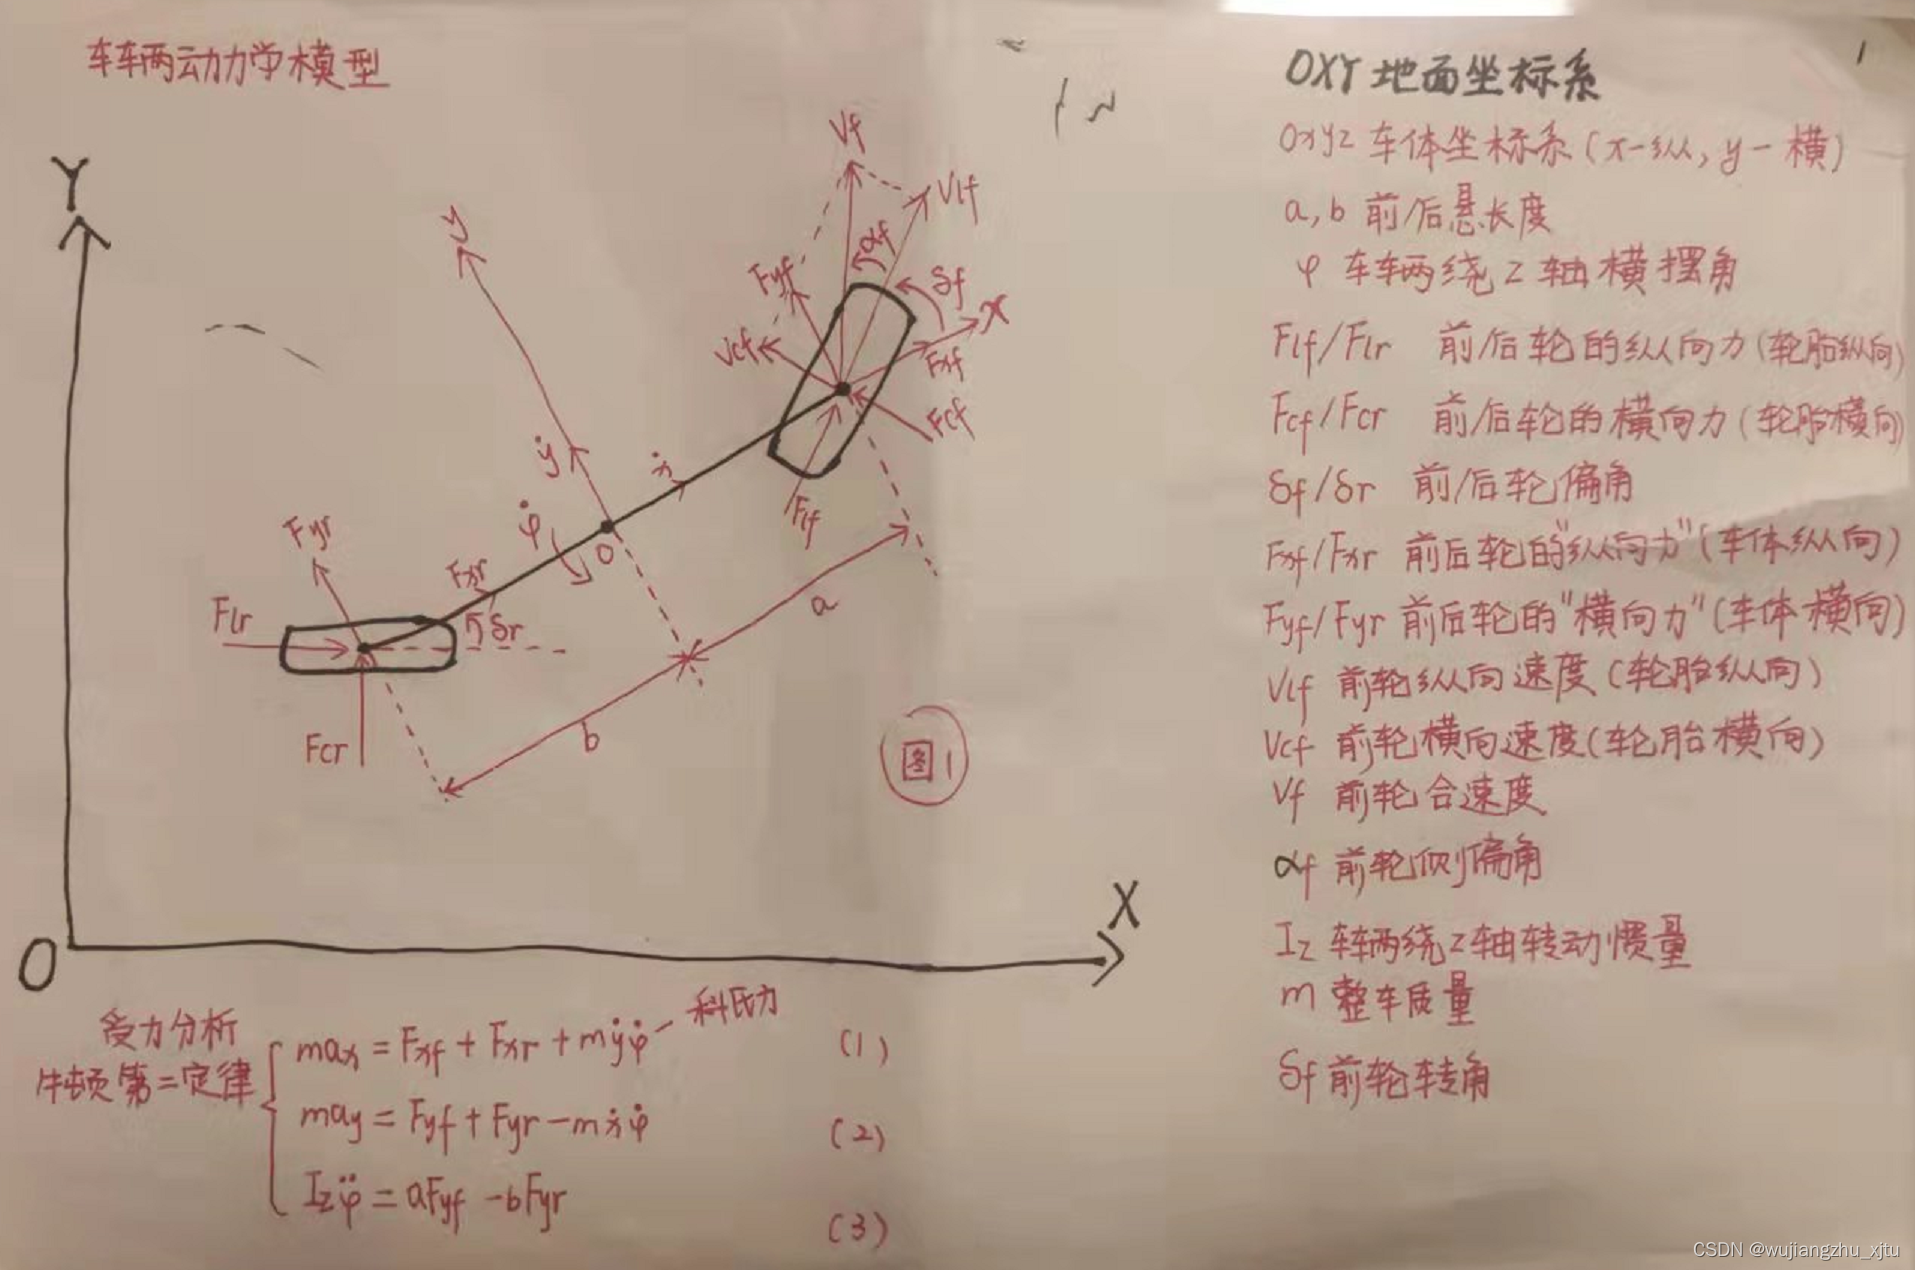 车辆动力学模型
Y
y
Vf
Vlf
αf
Fyf
δf
x
Vcf
Fxf
Fcf
Flf
ẏ
ẋ
φ̇
o
Fyr
Fxr
δr
Flr
Fcr
a
b
图1
X
O
受力分析
牛顿第二定律
max = Fxf + Fxr + mẏφ̇ — 科氏力 (1)
may = Fyf + Fyr - mẋφ̇ (2)
Izφ̈ = aFyf - bFyr (3)
1
OXY 地面坐标系
oxyz 车体坐标系(x-纵, y-横)
a, b 前/后悬长度
φ 车辆绕z轴横摆角
Flf/Flr 前/后轮的纵向力(轮胎纵向)
Fcf/Fcr 前/后轮的横向力(轮胎横向)
δf/δr 前/后轮偏角
Fxf/Fxr 前后轮的"纵向力"(车体纵向)
Fyf/Fyr 前后轮的"横向力"(车体横向)
Vlf 前轮纵向速度(轮胎纵向)
Vcf 前轮横向速度(轮胎横向)
Vf 前轮合速度
αf 前轮侧偏角
Iz 车辆绕z轴转动惯量
m 整车质量
δf 前轮转角
CSDN @wujiangzhu_xjtu